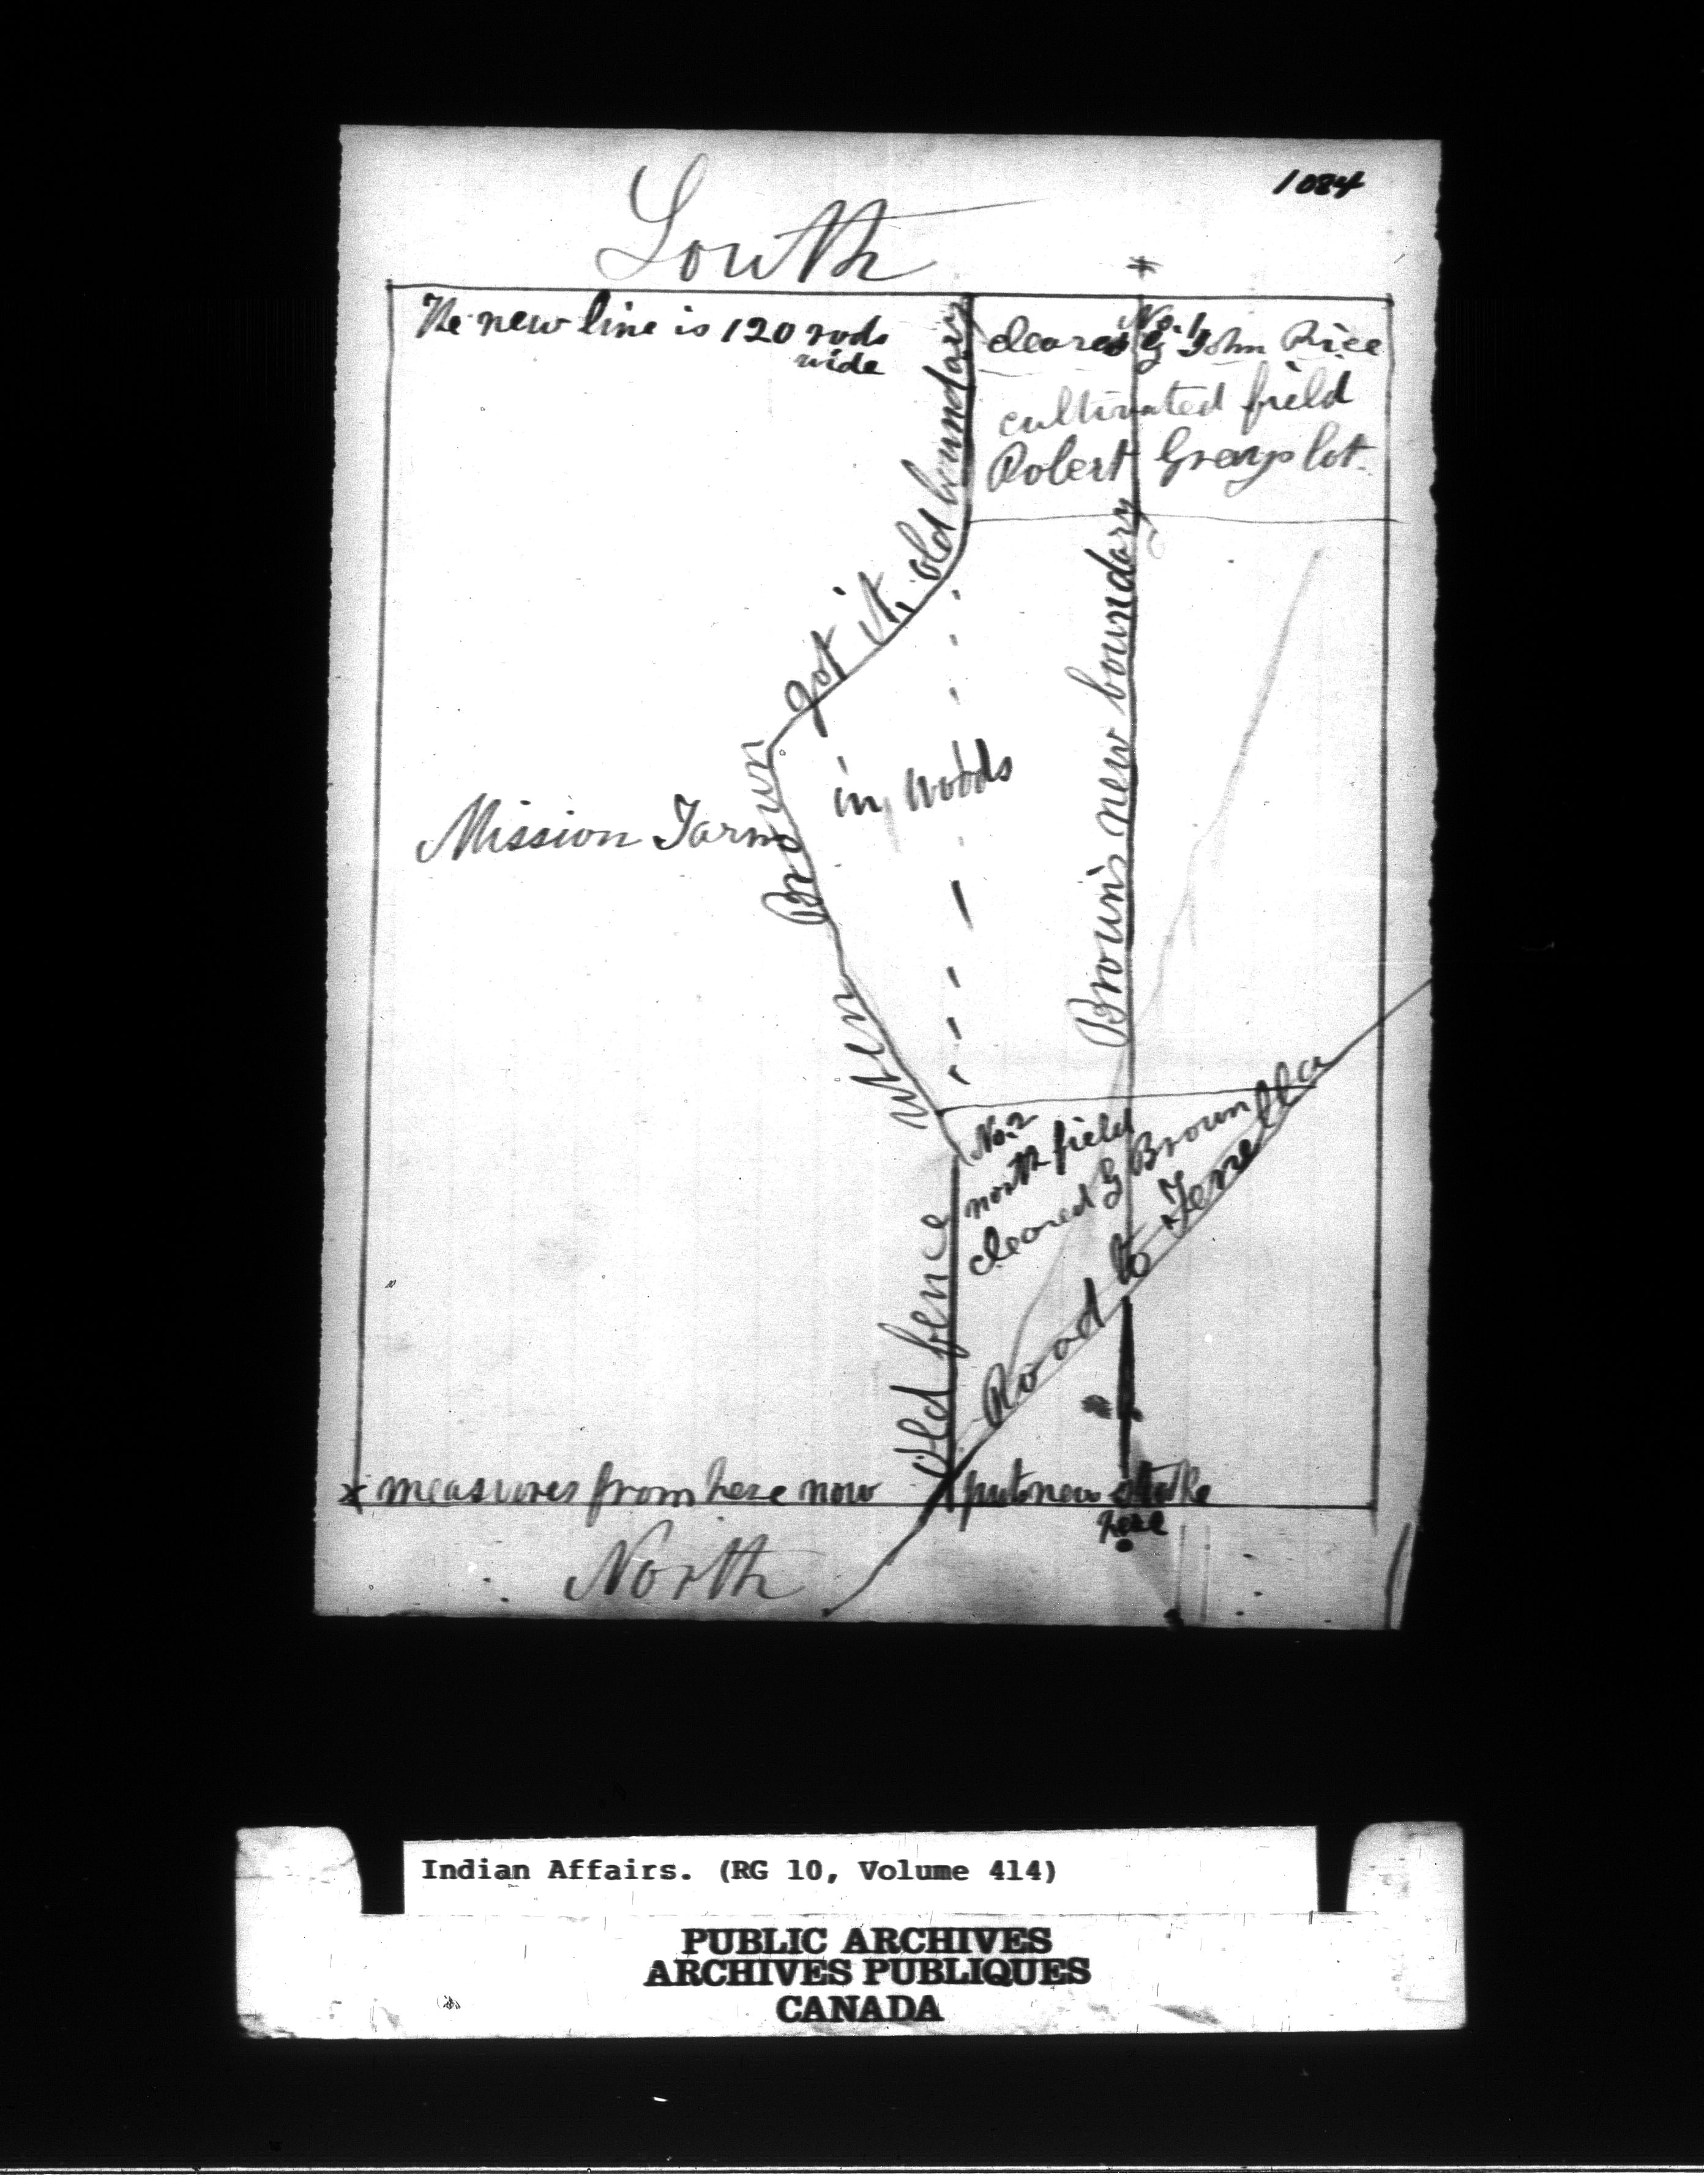 1084
South
The new line is 120 rods
wide
No. 1
cleared by John Rice
cultivated field
Robert Grays lot.
Old fence when Brown got it, old boundary
Brown's new boundary
in woods
Mission Farm
No. 2
north field
cleared by Brown
Road to
measures from here now
put new stake
here
North
Indian Affairs. (RG 10, Volume 414)
PUBLIC ARCHIVES
ARCHIVES PUBLIQUES
CANADA